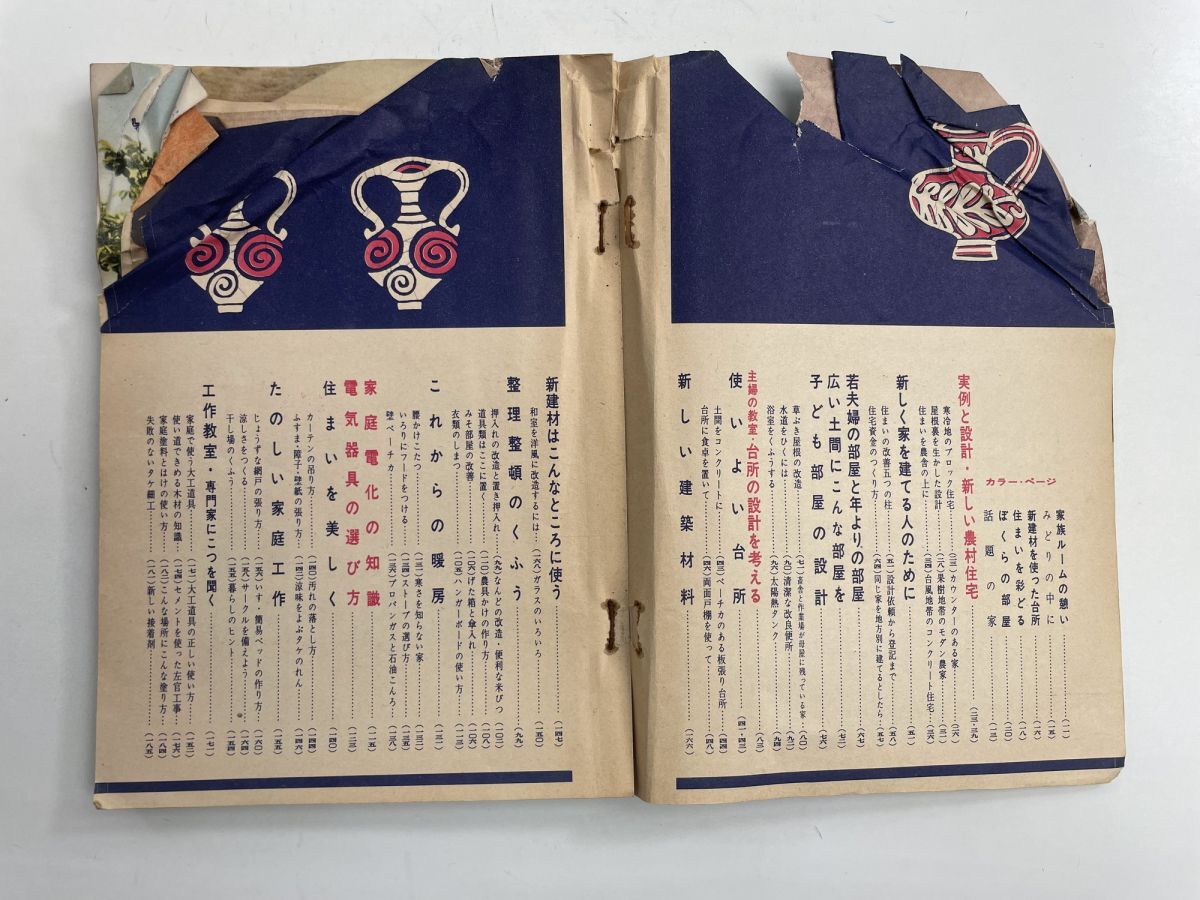 カラー・ページ
家族ルームの憩い……(一)
みどりの中に……(五)
新建材を使った台所……(六)
住まいを彩どる……(八)
ぼくらの部屋……(一〇)
話題の家……(一三)
実例と設計・新しい農村住宅……(三三・三九)
寒冷地のブロック住宅……(三三)
カウンターのある家……(二六)
屋根裏を生かした設計……(二八)
果樹地帯のモダン農家……(三一)
住まいを農舎の上に……(三四)
台風地帯のコンクリート住宅……(三六)
新しく家を建てる人のために……(五一)
住まいの改善五つの柱……(五五)
設計依頼から登記まで……(五一)
住宅資金のつくり方……(六四)
同じ家を地方別に建てるとしたら…(五七)
若夫婦の部屋と年よりの部屋……(六七)
広い土間にこんな部屋を……(七二)
子ども部屋の設計……(七六)
草ぶき屋根の改造……(七)
畜舎と作業場が母屋に残っている家…(八〇)
水道をひくには……(九〇)
清潔な改良便所……(九二)
浴室をくふうする……(九六)
太陽熱タンク……(九四)
主婦の教室・台所の設計を考える……(八三)
使いよい台所……(四一・四三)
土間をコンクリートに……(四三)
ペーチカのある板張り台所……(四四)
台所に食卓を置いて……(四六)
両面戸棚を使って……(四八)
新しい建築材料……(一六六)
新建材はこんなところに使う……(一四七)
和室を洋風に改造するには……(一六六)
ガラスのいろいろ……(一五〇)
整理整頓のくふう……(九九)
押入れの改造と置き押入れ……(九九)
なんどの改造 便利な米びつ……(一〇二)
道具類はここに置く……(一〇六)
農具かけの作り方……(一〇八)
みそ部屋の改善……(一一〇)
げた箱と傘入れ……(一〇四)
衣類のしまつ……(一〇五)
ハンガーボードの使い方……(一一三)
これからの暖房……(一三一)
腰かけこたつ……(一三一)
寒さを知らない家……(一三二)
いろりにフードをつける……(一三四)
ストーブの選び方……(一三五)
壁ペーチカ……(一三六)
プロパンガスと石油こんろ……(一三七)
家庭電化の知識……(一一五)
電気器具の選び方……(一二三)
住まいを美しく……(一四〇)
カーテンの吊り方……(一四〇)
汚れの落とし方……(一四四)
ふすま・障子・壁紙の張り方…(一四二)
涼味をよぶタケのれん……(一四六)
たのしい家庭工作……(一五五)
じょうずな網戸の張り方……(一五六)
いす・簡易ベッドの作り方……(一六〇)
涼しさをつくる……(一五八)
サークルを備えよう……(一六四)
干し場のくふう……(一五五)
暮らしのヒント……(一五四)
工作教室・専門家にこつを聞く……(一七一)
家庭で使う大工道具……(一七一)
大工道具の正しい使い方……(一五二)
使い道できめる木材の知識…(一七四)
セメントを使った左官工事……(一七六)
家庭塗料とはけの使い方……(一八二)
こんな場所にこんな塗り方……(一八四)
失敗のないタケ細工……(一八一)
新しい接着剤……(一八五)